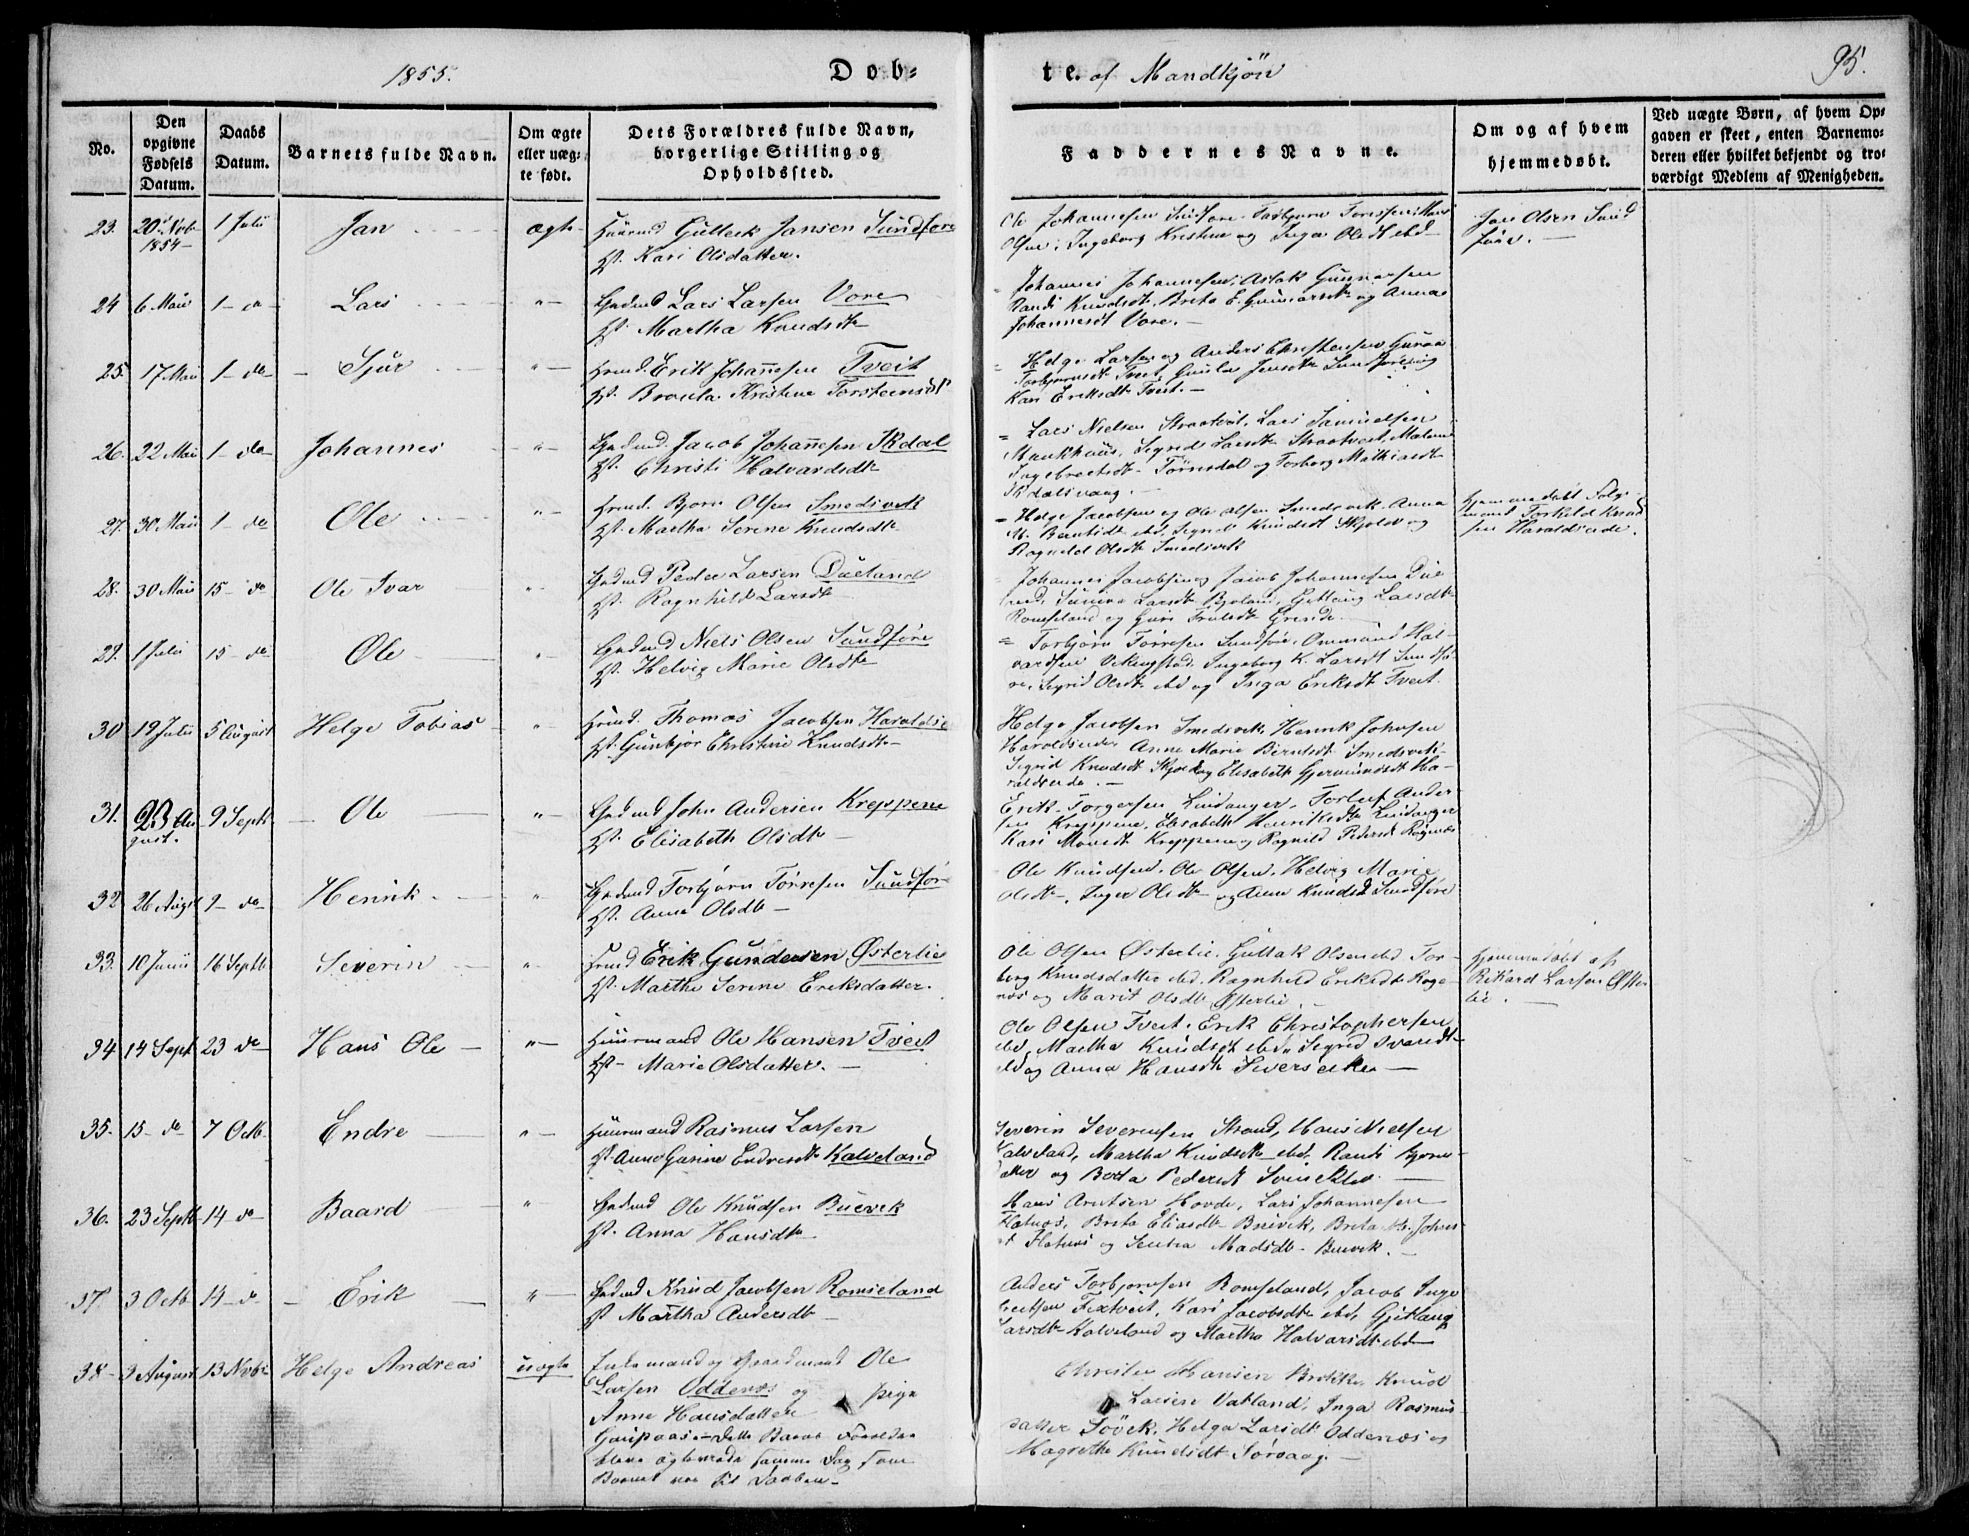 1855.
Dob=
te. af Mandkjön
95.
No.
Den opgivne Fødsels Datum.
Daabs Datum.
Barnets fulde Navn.
Om ægte eller uæg- te født.
Dets Forældres fulde Navn, borgerlige Stilling og Opholdssted.
Faddernes Navne.
Om og af hvem hjemmedøbt.
Ved uægte Børn, af hvem Op- gaven er skeet, enten Barnemo- deren eller hvilket bekjendt og tro- værdigt Medlem af Menigheden.
23. 20 Nvb 1 Julii Jan ægte Huusmd Gulleck Jansen Sundføre
1854 Hst. Kari Olsdatter.
Ole Johannesen Sundføre
Olsen, Ingeborg Kristine og Inga Olsdt ibd
Jan Olsen Sund
føre.
24 6 Maii 1 - d Lars " Gadmd Lars Larsen Vore
Hst. Martha Knudsdt
Johannes Johannesen, Aslak Gunnarsen
Randi Knudsdt, Brita E. Gunnarsdt og Anna
Johannesdt Vore.
25. 17 Mai 1 - do - Sjur " Hmd. Erik Johannesen Tveit
Hst. Kristine Torsteinsdt
Helge Larsen og Anders Christensen
Torbjørnsdt Tveit,
Kari Eriksdt Tveit.
26. 22 Mai 1 - do Johannes " Gadmd. Jacob Johannesen Ikdal
Hst. Christi Halvardsdt
= Lars Nielsen Straatveit, Lars Samuelsen
Munkhuus, Sigrid Larsdt Straatveit, Malene
Ingebrectsdt Tørresdal og Torborg Mathiasdt
Ikdalsvaag.
27. 30. Maii 1 - do Ole " Hmd. Bjørn Olsen Smedsvik
Hst. Martha Serine Knudsdt
= Helge Jacobsen og Ole Olsen Smedsvik, Anna
M. Berntsdt ibd, Sigrid Knudsdt Skjold og
Ragnild Olsdt Smedsvik
Hjemmedøbt
Torkild Knud
sen Haraldseide.
28. 30 Maii 15 - do Ole Ivar " Gadmd Peder Larsen Dueland
Hst. Ragnhild Larsdt
Johannes Jacobsen og Jacob Johannesen Due
land, Larsdt Larsdt
Romseland og Guri
29. 1 Julii 15 - do Ole " Gadmd Niels Olsen Sundføre
Hst. Helvig Marie Olsdt
= Torbjørn Tørresen Sundføre, Ommund Hal-
vardsen Vikingstad, Ingeborg K. Larsdt Sundfø-
re, Sigrid Olsdt ibd og Inga Eriksdt Tveit.
30 19 Julii 5 August Helge Tobias " Hmd. Thomas Jacobsen Haraldse
Hst. Gunbjør Christine Knudsdt
Helge Jacobsen Smedsvik, Henrik Johnsen
Haraldseide, Anne Marie Berntsdt Smedsvik
Sigrid Knudsdt Skjold og Elisabeth Gjermundsdt Ha-
raldseide.
31. 23 Au 9 Septb - Ole " Gadmd John Andersen Kreppene
gust. Hst. Elisabeth Olsdt
Erik Torgersen Lindanger, Torluf Ander
sen Kreppene, Elisabeth Henriksdt Lindanger
Kari Monsdt Kreppene og Ragnild Pedersdt Ragnæs
32 26 August 9 - do Henrik " Gadmd Torbjørn Tørresen Sundfør
Hst. Anna Olsdt
Ole Knudsen, Ole Olsen, Helvig Marie
Olsdt, Inger Olsdt og Anna Knudsdt Sundføre
33. 10 Junii 16 Septb Severin " Hmd Erik Gundersen Østerlie
Hst. Martha Serine Eriksdatter.
Ole Olsen Østerlie, Guttak Olsen ibd Tor-
borg Knudsdatter ibd, Ragnhild Eriksdt Rage-
næs og Marit Olsdt Østerlie
Hjemmedøbt af
Rikard Larsen Øster
lie.
34 14 Sept 23 do Hans Ole " Huusmand Ole Hansen Tveit
Hst Marie Olsdatter.
Ole Olsen Tveit, Erik Christophersen
ibd, Martha Knudsdt ibd, Sigrid Ivarsdt
ibd og Anna Hansdt
35. 15 - do 7 Octb. Endre " Huusmand Rasmus Larsen
Hst. Anne Gurine Endresdt Kalveland
Severin Severinsen Strand, Hans Nielsen
Kalveland, Martha Knudsdt ibd, Randi Bjørns
datter og Berta Pedersdt
36. 23 Septb 14 - do Baard " Gadmd Ole Knudsen Buevik
Hst. Anna Hansdt
Hans Arntsen Hovde, Lars Johannesen
Flatnæs, Brita Eliasdt Buevik, Brita M. Johns
dt Flatnæs og Madsdt Buevik.
37 3 Octb 14 - d - Erik " Gadmd Knud Jacobsen Romseland
Hst Martha Andersdt
Anders Torbjørnsen Romseland, Jacob Inge
brectsen Fixtveit, Kari Jacobsdt ibd, Gjetlaug
Larsdt Kalveland og Martha Halvarsdt ibd
38 3 August 13 Nvbr Helge Andreas uægte Enkemand og Gaardmand Ole
Larsen Oddenæs og Pige
Anne Hansdatter
dette Barns Forældre
bleve ægteviede samme Dag som
Barnet var til Daaben
Christen Hansen Brekke, Knud
Larsen Vatland, Inga Rasmus
datter Søvik, Helga Larsdt Oddenæs og
Magrethe Knudsdt Sørvaag.